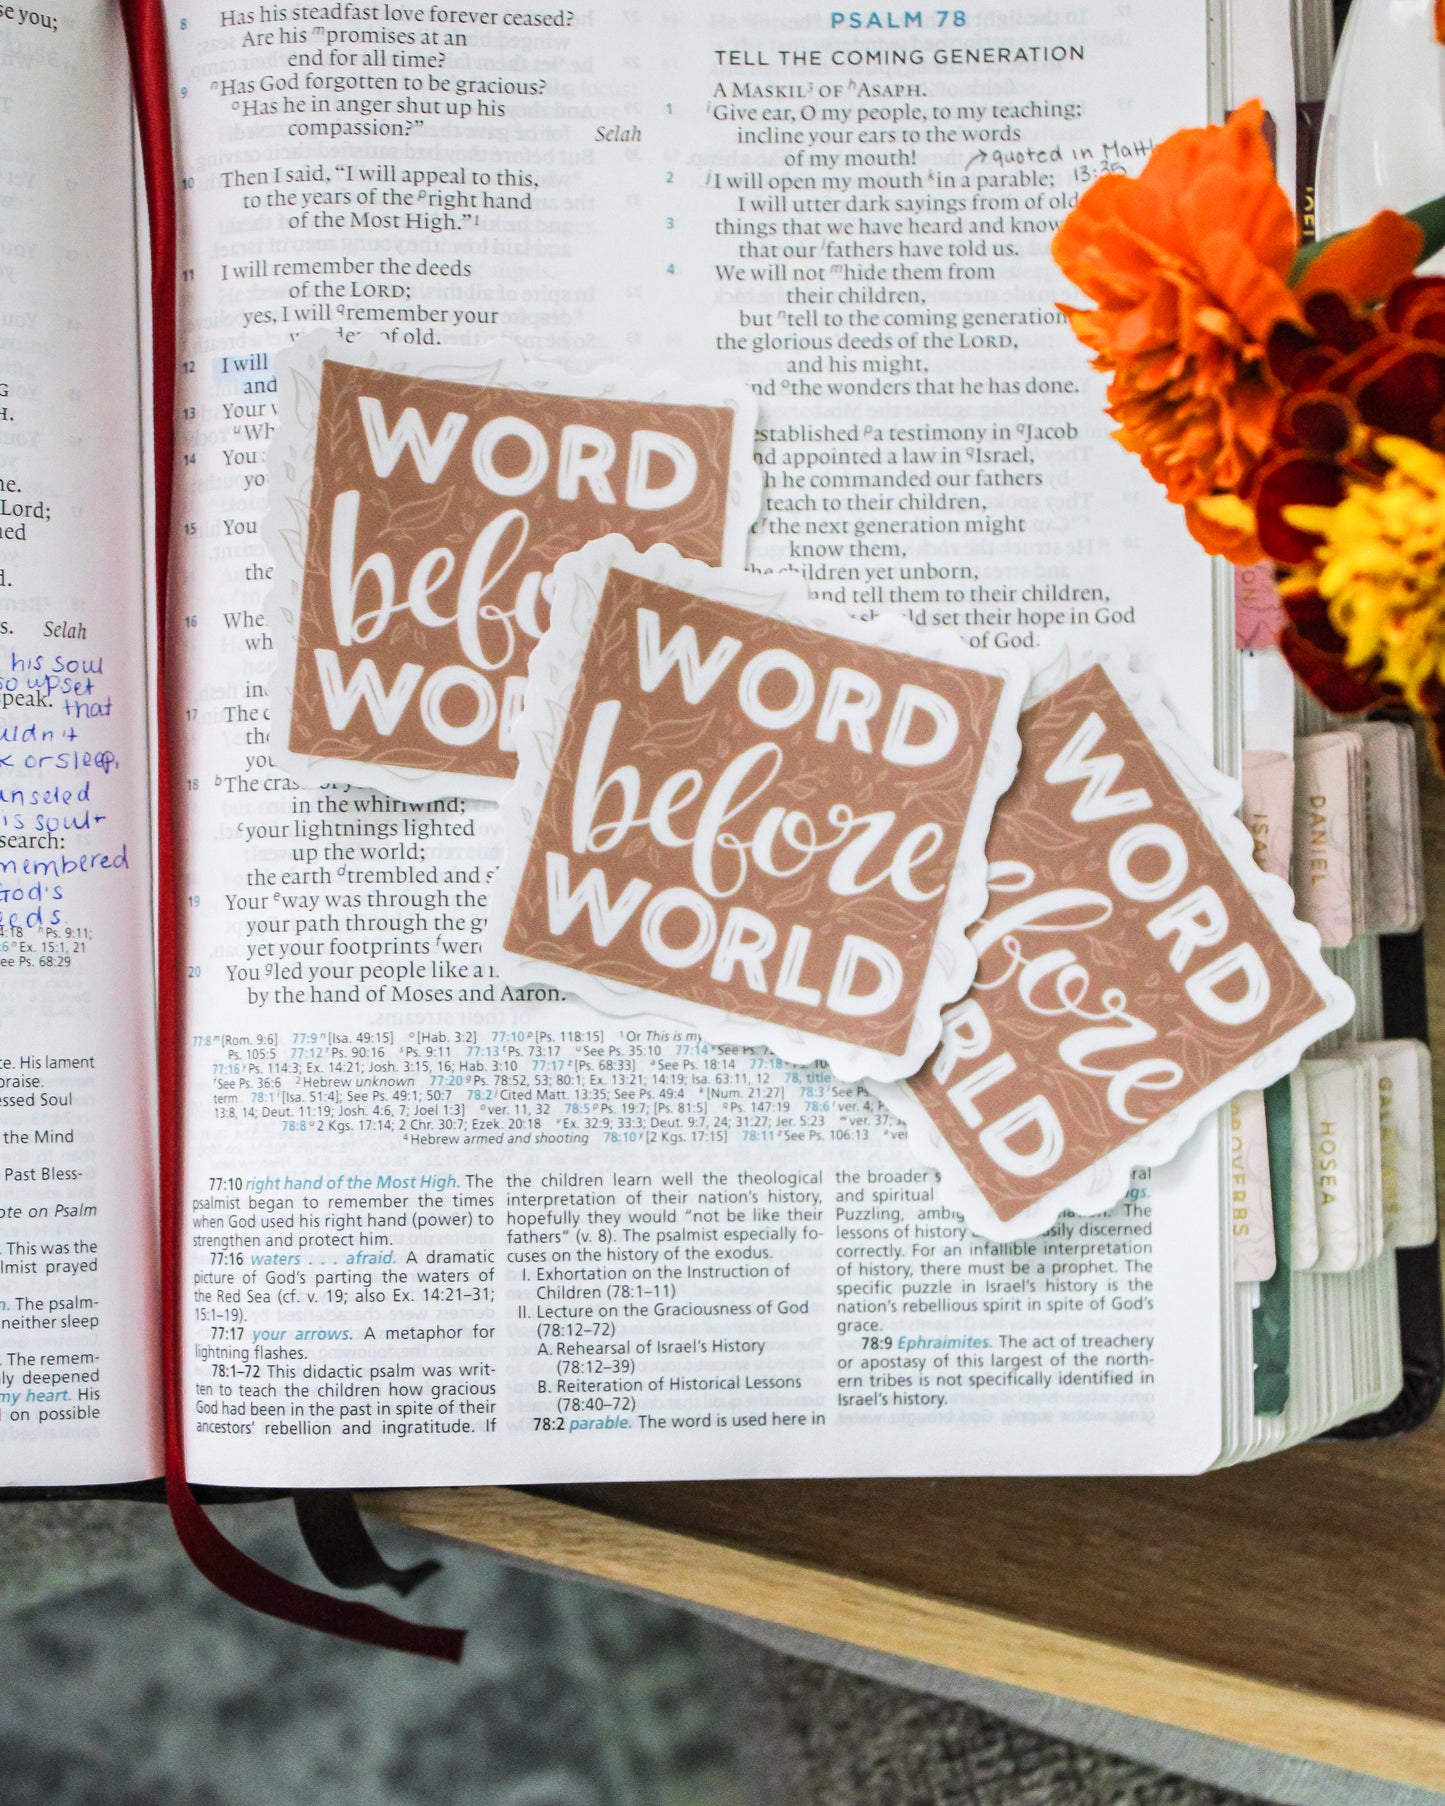 se you;
G
H.
ne.
Lord;
ned
d.
s. Selah
his soul
so upset
speak. that
k or sleep.
search:
membered
God's
4:18 ⁿPs. 9:11;
Ex. 15:1, 21
ee Ps. 68:29
ce. His lament
praise.
essed Soul
the Mind
Past Bless-
ote on Psalm
. This was the
lmist prayed
n. The psalm-
neither sleep
. The remem-
ly deepened
my heart. His
on possible
8 Has his steadfast love forever ceased?
Are his ᵐpromises at an
end for all time?
9 ⁿHas God forgotten to be gracious?
ᵒHas he in anger shut up his
compassion?” Selah
10 Then I said, “I will appeal to this,
to the years of the ᵖright hand
of the Most High.”¹
11 I will remember the deeds
of the LORD;
yes, I will ᑫremember your
of old.
12 I will
and
13 Your
ᵘWh
14 You
yo
15 You
the
16 Whe
wh
in
17 The c
the
you
18 ᵇThe cras
in the whirlwind;
ᶜyour lightnings lighted
up the world;
the earth ᵈtrembled and s
19 Your ᵉway was through the
your path through the g
yet your footprints ᶠwere
20 You ᵍled your people like a
by the hand of Moses and Aaron.
PSALM 78
TELL THE COMING GENERATION
A MASKIL³ OF ʰASAPH.
1 ⁱGive ear, O my people, to my teaching;
incline your ears to the words
of my mouth! → quoted in Matt
2 ʲI will open my mouth ᵏin a parable; 13:35
I will utter dark sayings from of old
3 things that we have heard and know
that our ˡfathers have told us.
4 We will not ᵐhide them from
their children,
but ⁿtell to the coming generation
the glorious deeds of the LORD,
and his might,
and ᵒthe wonders that he has done.
established ᵖa testimony in ᑫJacob
nd appointed a law in ᑫIsrael,
h he commanded our fathers
teach to their children,
ʳthe next generation might
know them,
the children yet unborn,
and tell them to their children,
should set their hope in God
of God.
WORD
before
WORLD
WORD
befo
WOR
WORD
before
RLD
77:8 ᵐ[Rom. 9:6] 77:9 ⁿ[Isa. 49:15] ᵒ[Hab. 3:2] 77:10 ᵖ[Ps. 118:15] ¹Or This is my
Ps. 105:5 77:12 ʳPs. 90:16 ˢPs. 9:11 77:13 ᵗPs. 73:17 ᵘSee Ps. 35:10 77:14 ᵛSee Ps. 7
77:16 ʸPs. 114:3; Ex. 14:21; Josh. 3:15, 16; Hab. 3:10 77:17 ᶻ[Ps. 68:33] ᵃSee Ps. 18:14 77:18
See Ps. 36:6 ²Hebrew unknown 77:20 ᵍPs. 78:52, 53; 80:1; Ex. 13:21; 14:19; Isa. 63:11, 12 78, title
term 78:1 ⁱ[Isa. 51:4]; See Ps. 49:1; 50:7 78:2 ʲCited Matt. 13:35; See Ps. 49:4 ᵏ[Num. 21:27] 78:3 ˡSee Ps.
13:8, 14; Deut. 11:19; Josh. 4:6, 7; Joel 1:3] ᵒver. 11, 32 78:5 ᵖPs. 19:7; [Ps. 81:5] ᑫPs. 147:19 78:6 ʳver. 4;
78:8 ᵘ2 Kgs. 17:14; 2 Chr. 30:7; Ezek. 20:18 ᵛEx. 32:9; 33:3; Deut. 9:7, 24; 31:27; Jer. 5:23 ʷver. 37;
⁴Hebrew armed and shooting 78:10 ʸ[2 Kgs. 17:15] 78:11 ᶻSee Ps. 106:13
77:10 right hand of the Most High. The
psalmist began to remember the times
when God used his right hand (power) to
strengthen and protect him.
77:16 waters . . . afraid. A dramatic
picture of God’s parting the waters of
the Red Sea (cf. v. 19; also Ex. 14:21–31;
15:1–19).
77:17 your arrows. A metaphor for
lightning flashes.
78:1–72 This didactic psalm was writ-
ten to teach the children how gracious
God had been in the past in spite of their
ancestors’ rebellion and ingratitude. If
the children learn well the theological
interpretation of their nation’s history,
hopefully they would “not be like their
fathers” (v. 8). The psalmist especially fo-
cuses on the history of the exodus.
I. Exhortation on the Instruction of
Children (78:1–11)
II. Lecture on the Graciousness of God
(78:12–72)
A. Rehearsal of Israel’s History
(78:12–39)
B. Reiteration of Historical Lessons
(78:40–72)
78:2 parable. The word is used here in
the broader s ral
and spiritual gs.
Puzzling, ambig The
lessons of history easily discerned
correctly. For an infallible interpretation
of history, there must be a prophet. The
specific puzzle in Israel’s history is the
nation’s rebellious spirit in spite of God’s
grace.
78:9 Ephraimites. The act of treachery
or apostasy of this largest of the north-
ern tribes is not specifically identified in
Israel’s history.
DANIEL
HOSEA
PROVERBS